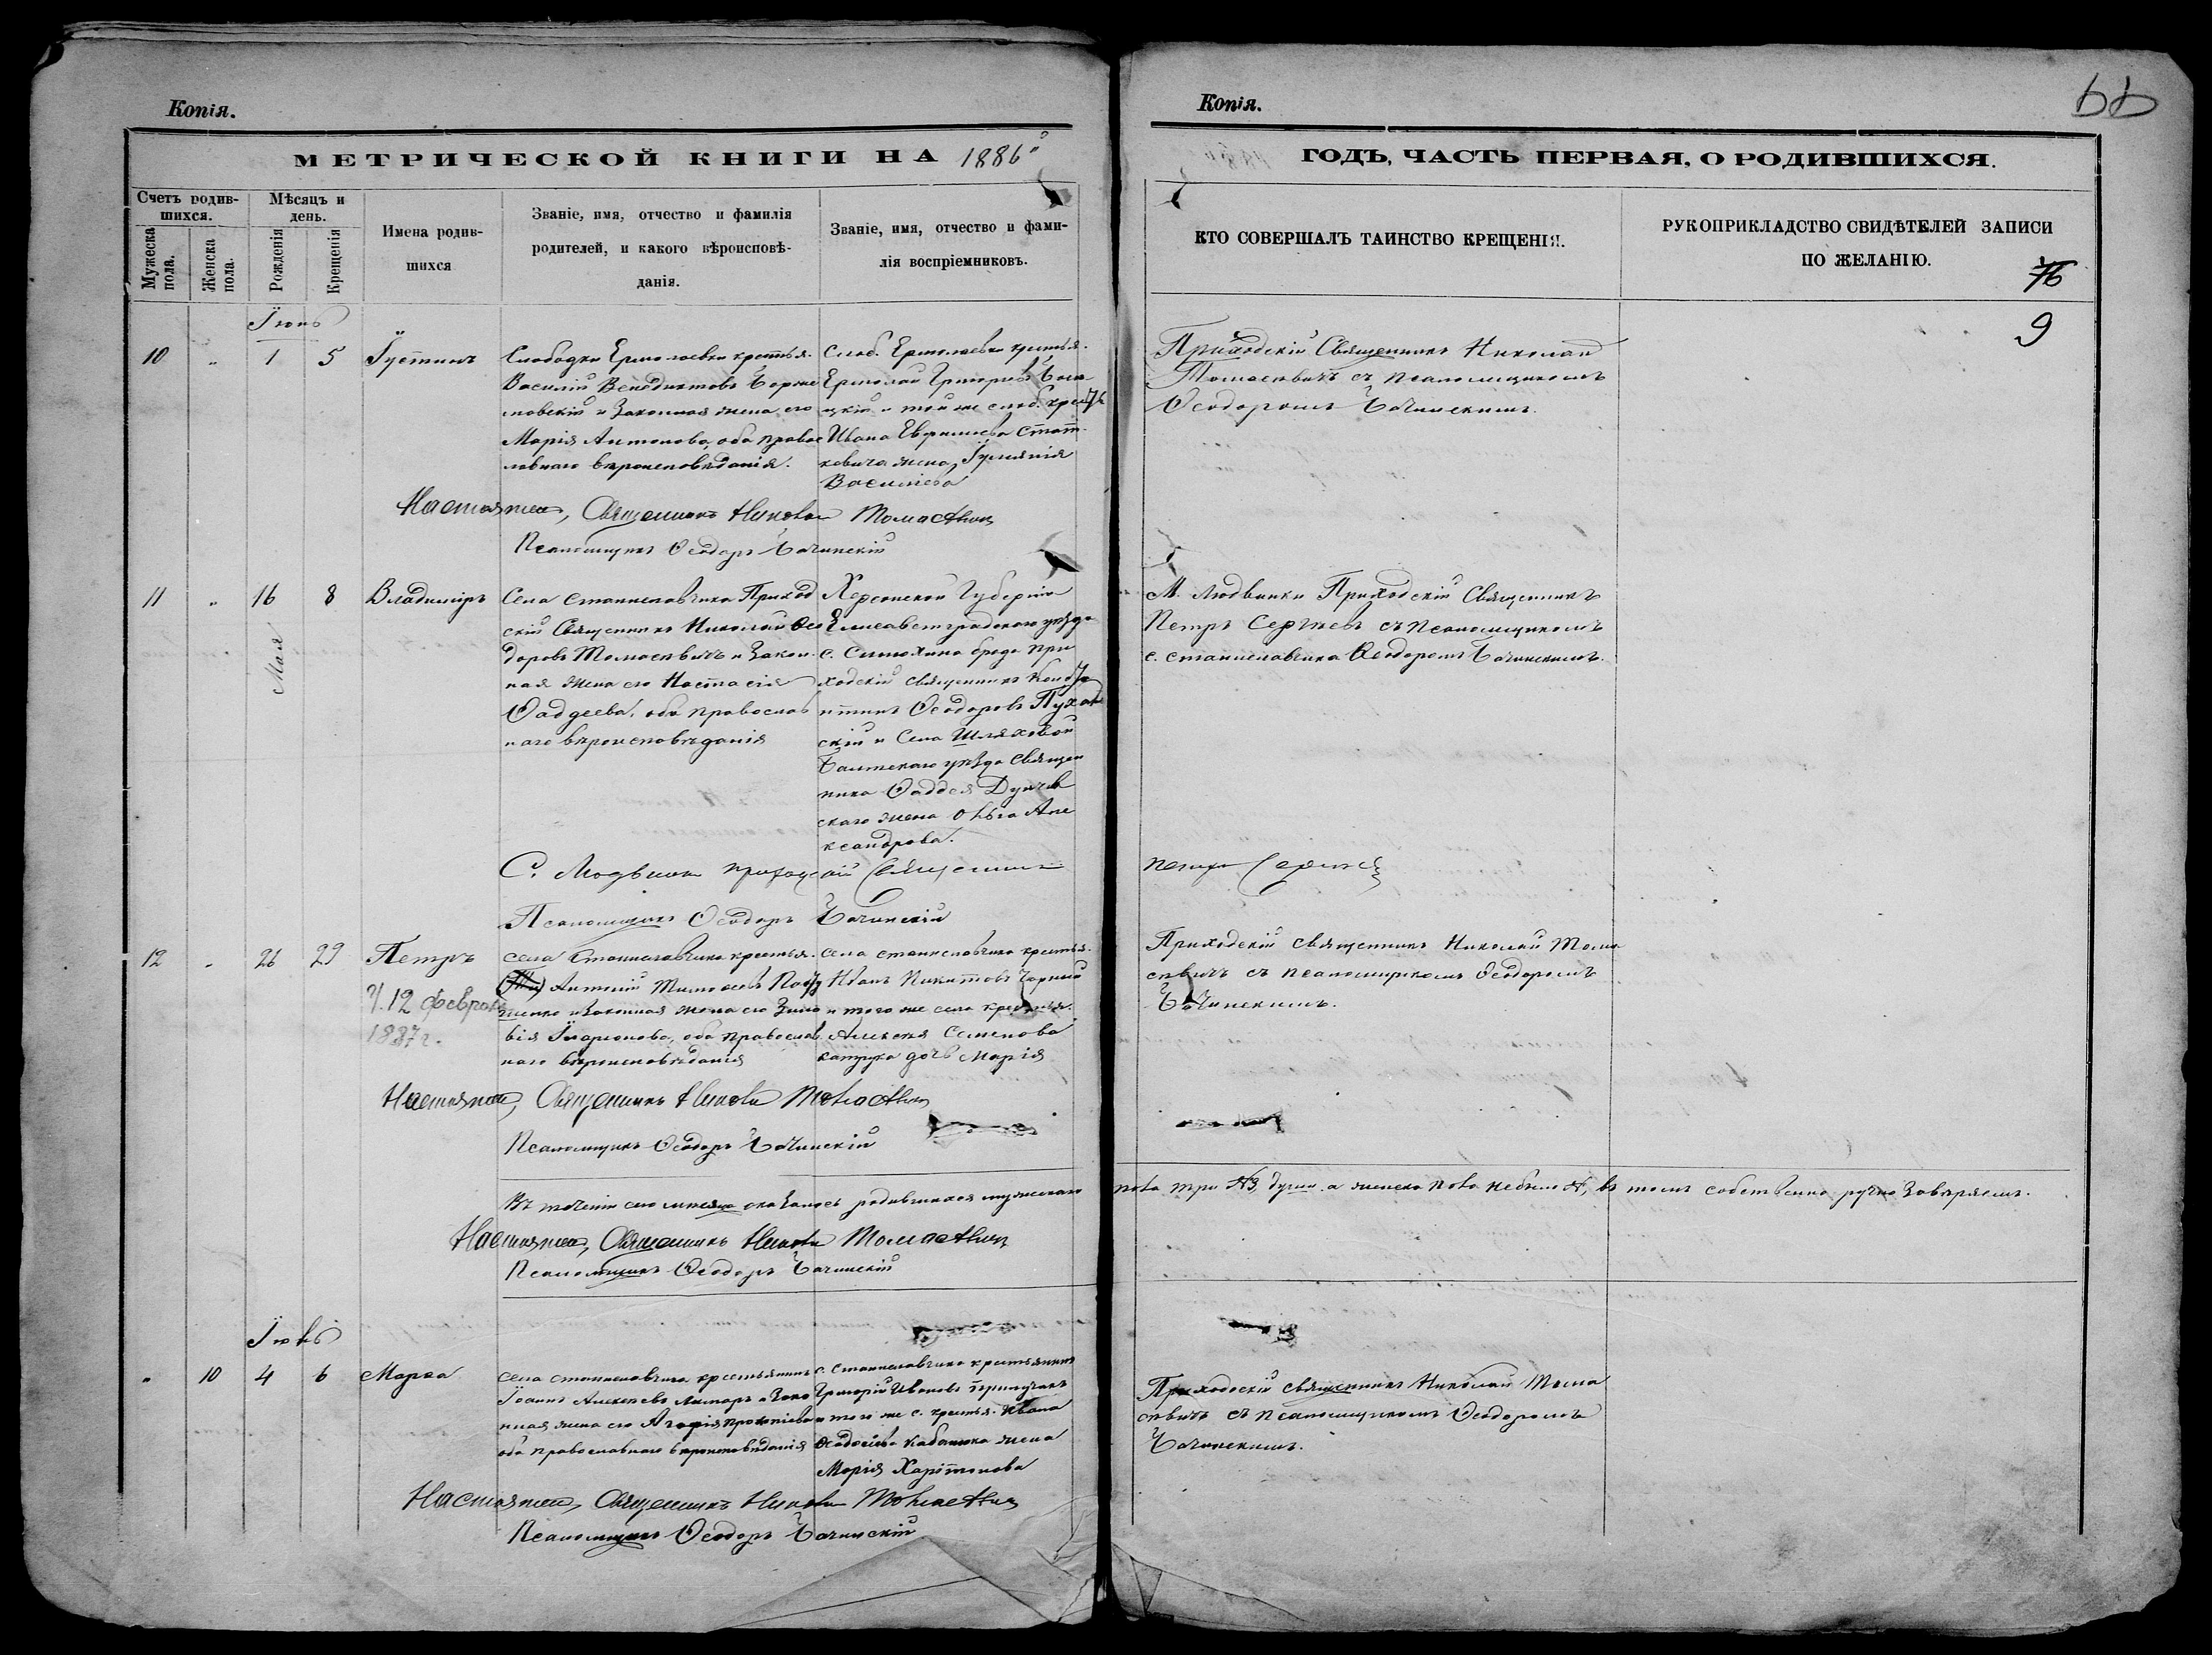 Копія.
МЕТРИЧЕСКОЙ КНИГИ НА 1886й
Счетъ родив-
шихся.
Мѣсяцъ и
день.
Мужеска
пола.
Женска
пола.
Рожденія
Крещенія
Имена родив-
шихся
Званіе, имя, отчество и фамилія
родителей, и какого вѣроисповѣ-
данія.
Званіе, имя, отчество и фами-
лія воспріемниковъ.
Іюнь
10 " 1 5 Іустинъ
Слободки Ермолаевки крестья.
Василій Венедиктовъ
и законная жена его
Марія Антонова, оба правос
лавнаго вѣроисповѣданія.
Слоб. Ермолаевки крестья.
Ермолай Григорьевъ
и той же слоб. крест.
Ивана
жена,
Васильева
Настоятель, Священникъ Николай Томасевич
Псаломщикъ Ѳеодоръ Бачинскій
11 " 16 8 Владиміръ
Мая
Села Станиславчика Приход
скій Священникъ Николай Ѳео
доровъ Томасевичъ и закон.
ная жена его Настасія
Ѳаддеева, оба православ
наго вѣроисповѣданія
Херсонской Губерніи
Елисаветградскаго уѣзда
с. Синюхина брода при
ходскій священникъ Конста
нтинъ Ѳеодоровъ
скій и Села Шляховой
Балтскаго уѣзда Священ
ника Ѳаддея
скаго жена Ольга Але
ксандрова.
С. Людвинки приходскій Священникъ
Псаломщикъ Ѳеодоръ Бачинскій
12 " 26 29 Петръ
У. 12 Февраля
1887 г.
села Станиславчика крестья.
Антоній Тимоѳеевъ
и законная жена его Зино
вія Иларіонова, оба православ
наго вѣроисповѣданія
села Станиславчика крестья.
Иванъ Никитовъ Чорный
и того же села крестья.
Алексея Семенова
дочь Марія
Настоятель, Священникъ Николай Томасевич
Псаломщикъ Ѳеодоръ Бачинскій
Въ теченіи сего мѣсяца оказалось родившихся мужескаго
Настоятель, Священникъ Николай Томасевич
Псаломщикъ Ѳеодоръ Бачинскій
Іюль
" 10 4 6 Марѳа
села Станиславчика крестьянинъ
Іоаннъ Алексѣевъ и зако
нная жена его Агафія Прокопіева
оба православнаго вѣроисповѣданія
с. Станиславчика крестьянинъ
Григорій Ивановъ
и того же с. крестья. Ивана
жена
Марія Харитонова
Настоятель, Священникъ Николай Томасевич
Псаломщикъ Ѳеодоръ Бачинскій
Копія.
ГОДЪ, ЧАСТЬ ПЕРВАЯ, О РОДИВШИХСЯ.
КТО СОВЕРШАЛЪ ТАИНСТВО КРЕЩЕНІЯ.
РУКОПРИКЛАДСТВО СВИДѢТЕЛЕЙ ЗАПИСИ
ПО ЖЕЛАНІЮ.
9
Приходскій Священникъ Николай
Томасевичъ съ псаломщикомъ
Ѳеодоромъ Бачинскимъ.
М. Людвинки Приходскій Священникъ
Петръ Сергѣевъ съ псаломщикомъ
с. Станиславчика Ѳеодоромъ Бачинскимъ.
Петръ Сергѣевъ
Приходскій священникъ Николай Тома
севичъ съ псаломщикомъ Ѳеодоромъ
Бачинскимъ.
пола три №3, души, а женска пола небыло №, въ томъ собственно ручно завѣряемъ.
Приходскій священникъ Николай Тома
севичъ съ псаломщикомъ Ѳеодоромъ
Бачинскимъ.